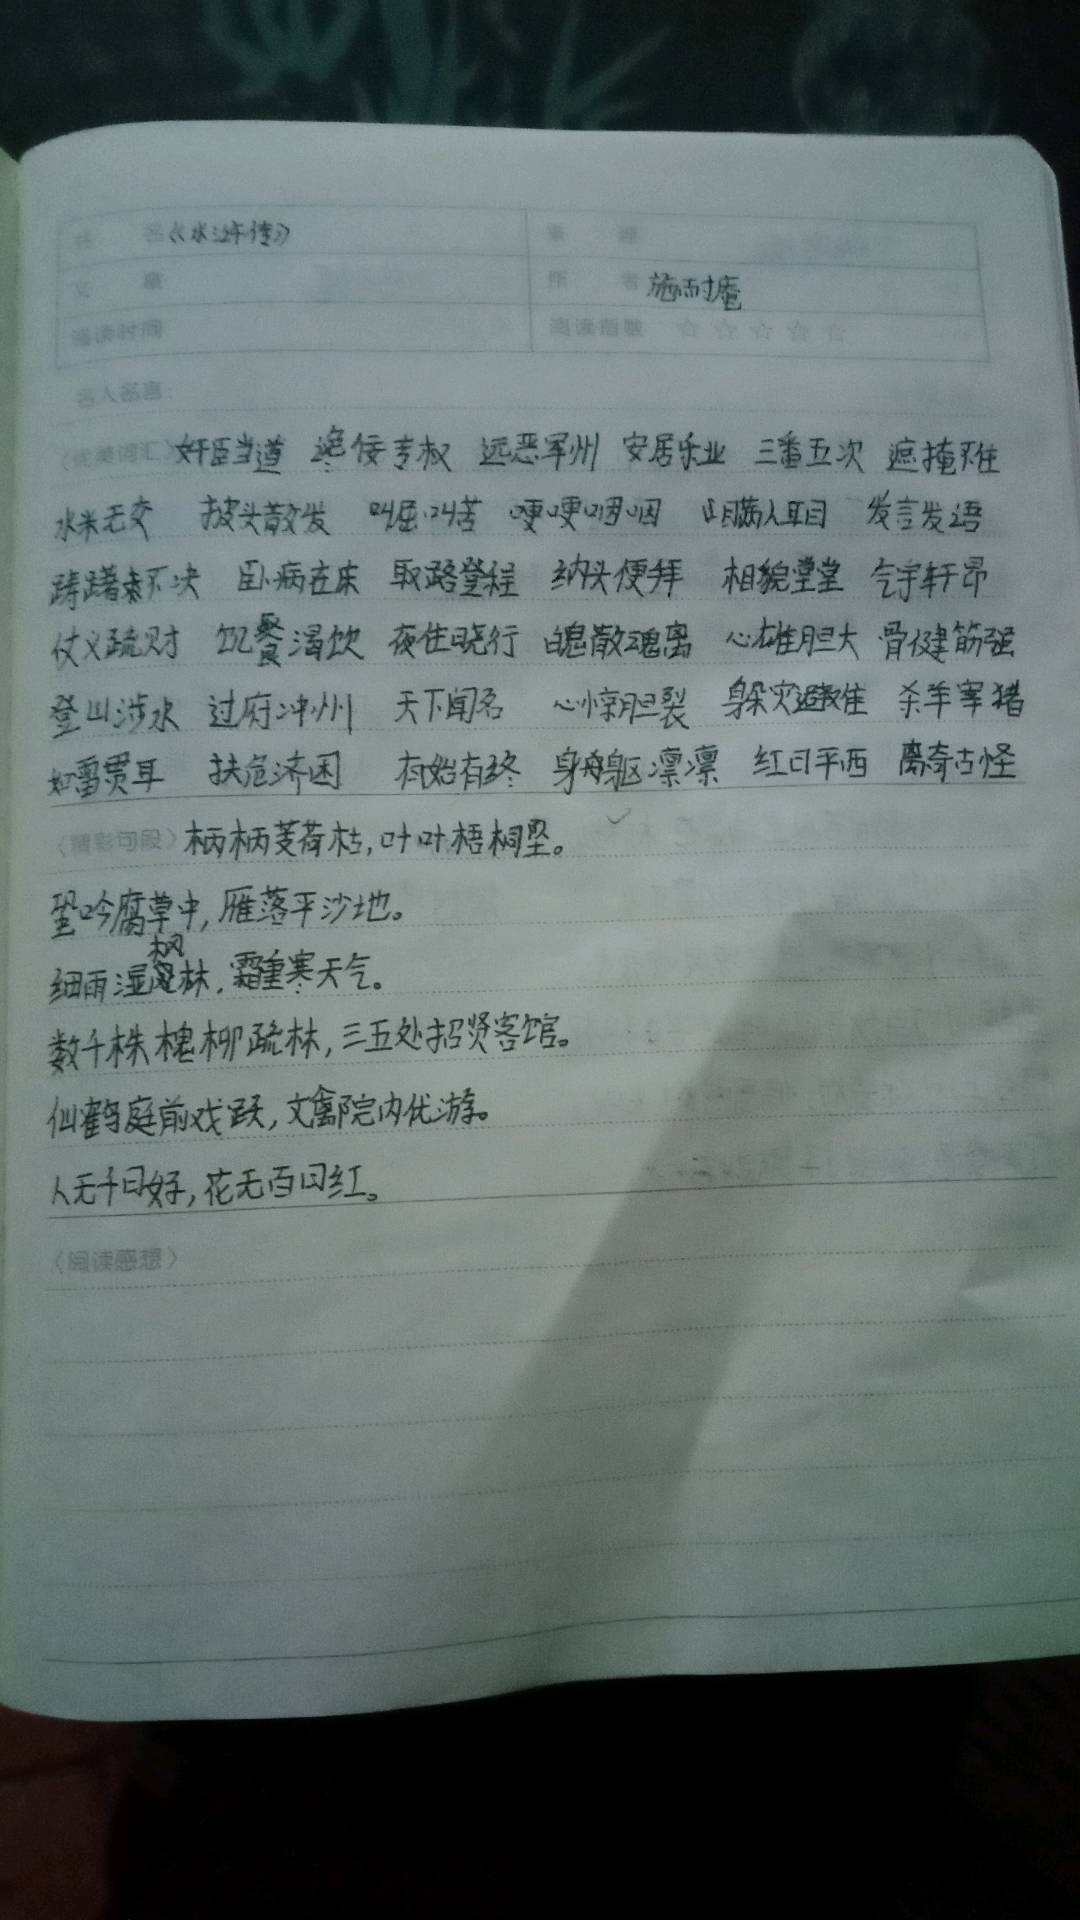 书 名《水浒传》 来 源
文 章 作 者 施耐庵
阅读时间 阅读指数 ☆☆☆☆☆
名人名言:
〈优美词汇〉奸臣当道 谗佞专权 远恶军州 安居乐业 三番五次 遮掩不住
水米无交 披头散发 叫屈叫苦 哽哽咽咽 瞒人耳目 发言发语
踌躇未决 卧病在床 取路登程 纳头便拜 相貌堂堂 气宇轩昂
仗义疏财 饥餐渴饮 夜住晓行 魄散魂离 心雄胆大 骨健筋强
登山涉水 过府冲州 天下闻名 心惊胆裂 躲灾避难 杀羊宰猪
如雷贯耳 扶危济困 有始有终 身躯凛凛 红日平西 离奇古怪
〈精彩句段〉柄柄芰荷枯,叶叶梧桐坠。
蛩吟腐草中,雁落平沙地。
细雨湿枫林,霜重寒天气。
数千株槐柳疏林,三五处招贤客馆。
仙鹤庭前戏跃,文禽院内优游。
人无千日好,花无百日红。
〈阅读感想〉